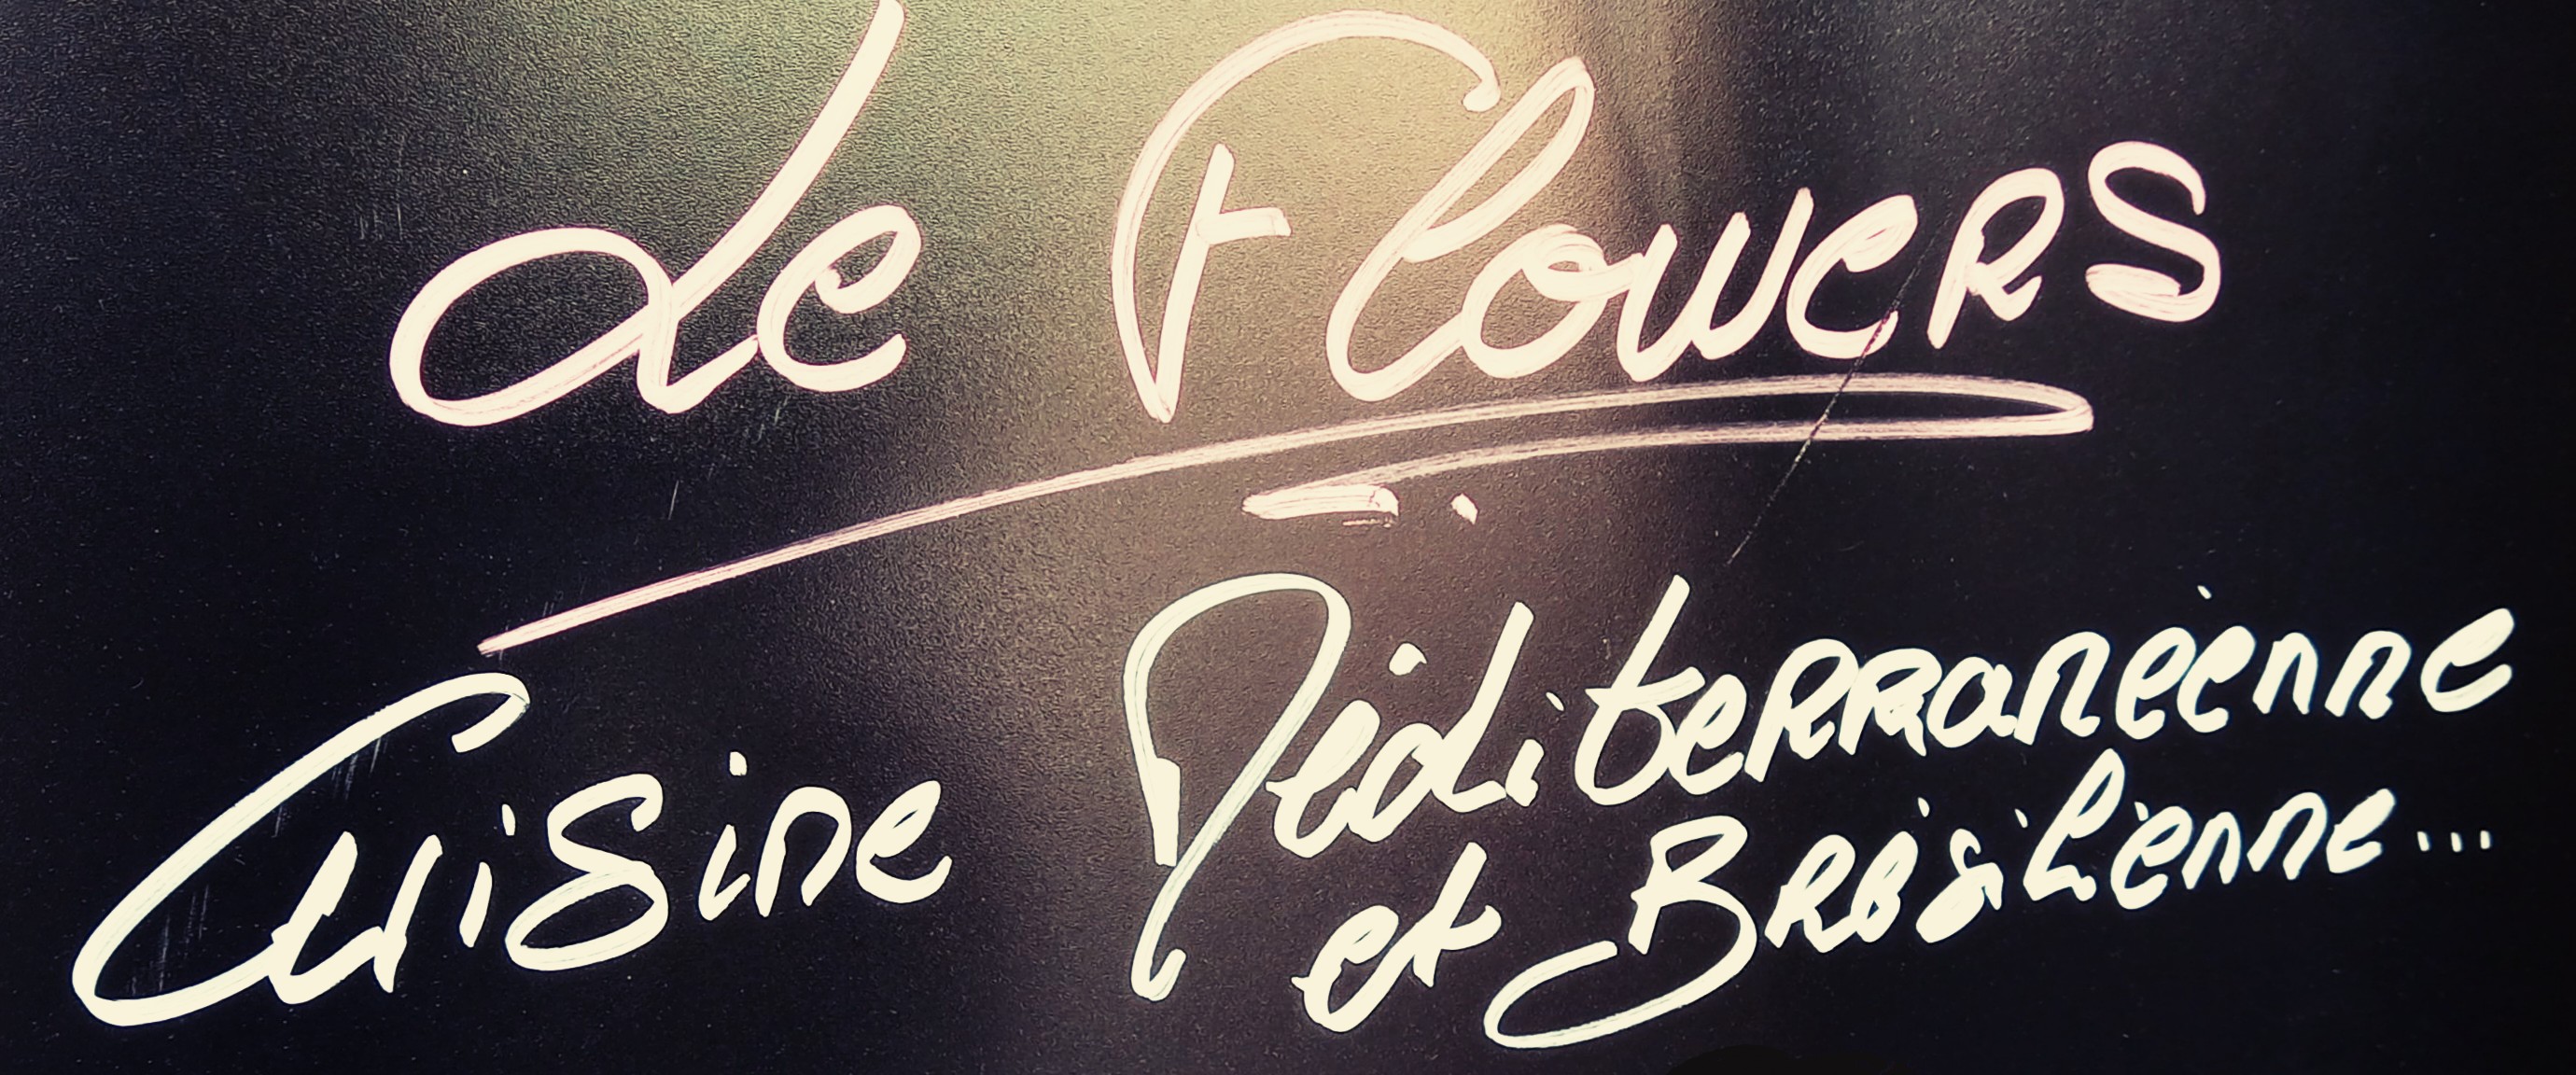 Le Flowers
Cuisine Méditerranéenne
et Brésilienne...